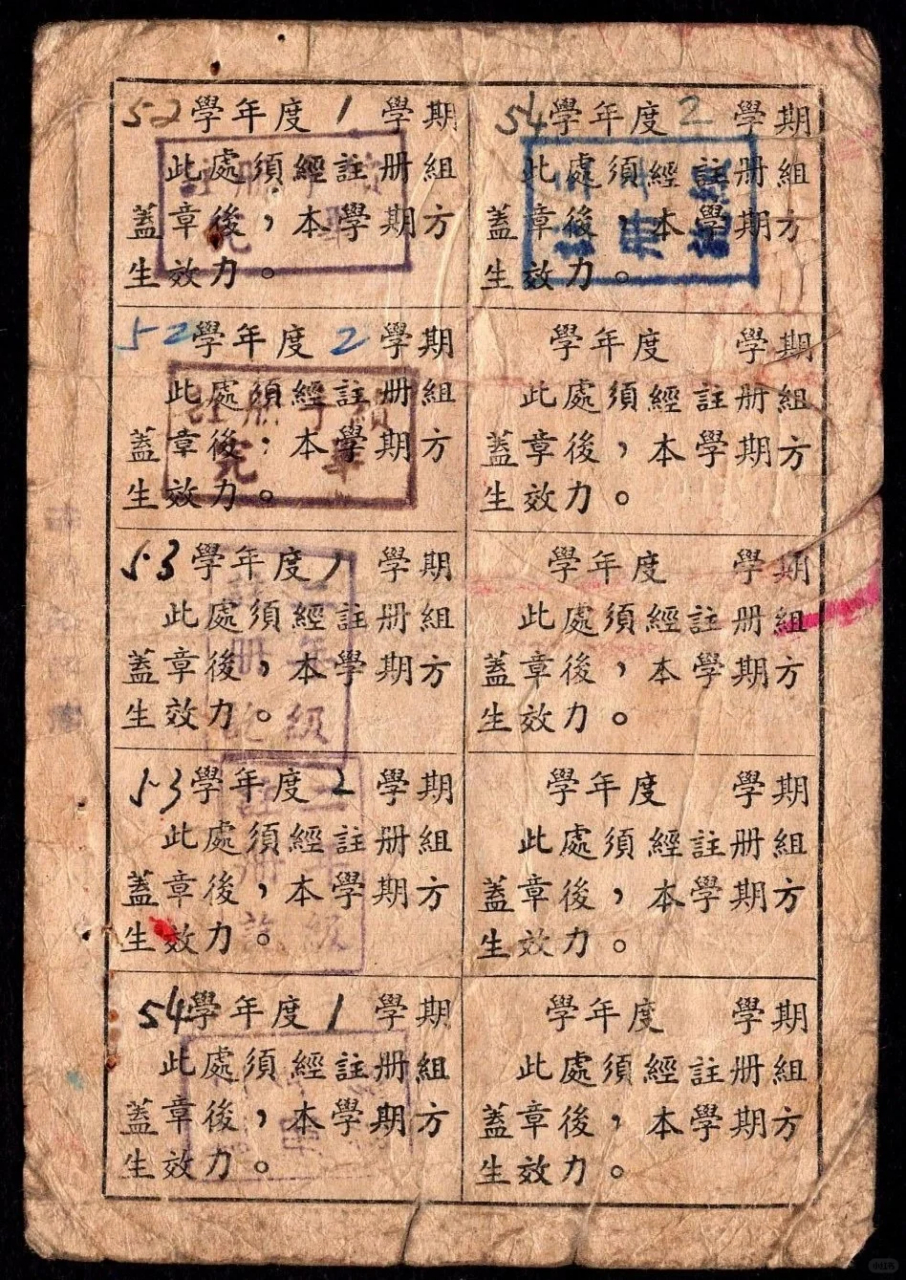 52學年度1學期
此處須經註册組
蓋章後，本學期方
生效力。
註册手續
完畢
52學年度2學期
此處須經註册組
蓋章後，本學期方
生效力。
註册手續
完畢
53學年度1學期
此處須經註册組
蓋章後，本學期方
生效力。
二年級
註册訖
53學年度2學期
此處須經註册組
蓋章後，本學期方
生效力。
二年級
註册訖
54學年度1學期
此處須經註册組
蓋章後，本學期方
生效力。
54學年度2學期
此處須經註册組
蓋章後，本學期方
生效力。
學年度 學期
此處須經註册組
蓋章後，本學期方
生效力。
學年度 學期
此處須經註册組
蓋章後，本學期方
生效力。
學年度 學期
此處須經註册組
蓋章後，本學期方
生效力。
學年度 學期
此處須經註册組
蓋章後，本學期方
生效力。